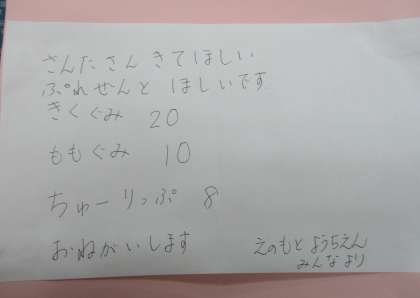 さんたさん きてほしい
ぷれせんと ほしいです
きくぐみ 20
ももぐみ 10
ちゅーりっぷ 8
おねがいします
えのもと ようちえん
みんなより